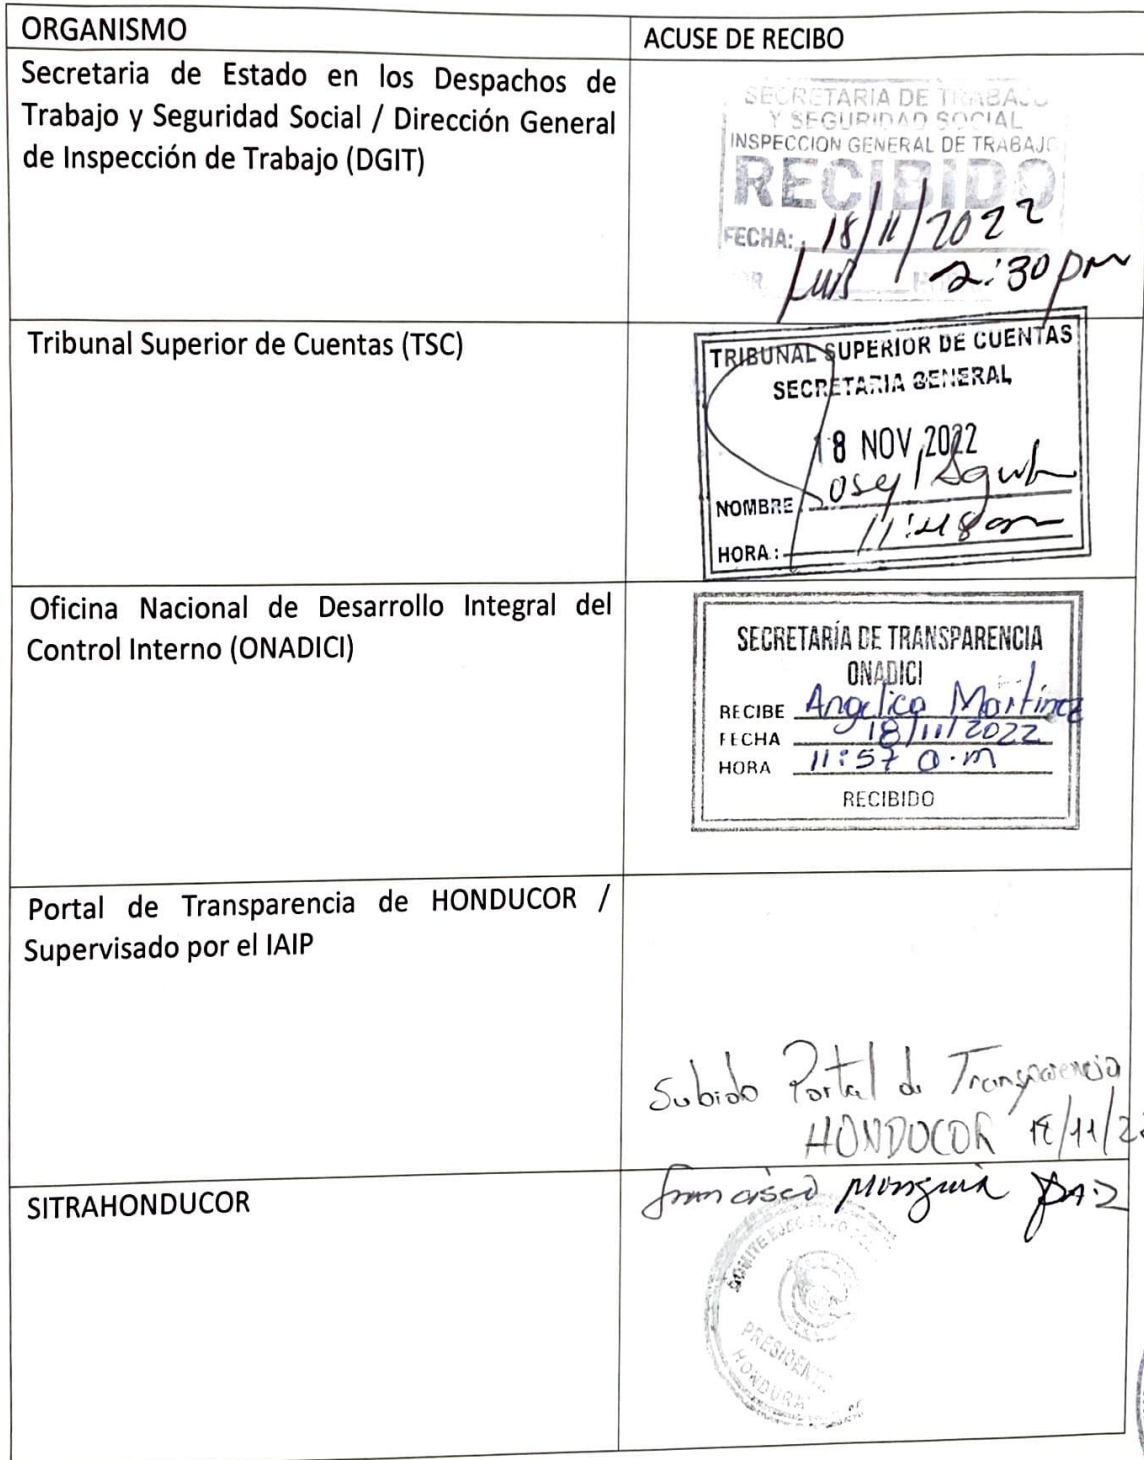 ORGANISMO
ACUSE DE RECIBO
Secretaria de Estado en los Despachos de
Trabajo y Seguridad Social / Dirección General
de Inspección de Trabajo (DGIT)
SECRETARIA DE TRABAJO
Y SEGURIDAD SOCIAL
INSPECCION GENERAL DE TRABAJO
RECIBIDO
FECHA: 18/11/2022
Luis 2:30 pm
Tribunal Superior de Cuentas (TSC)
TRIBUNAL SUPERIOR DE CUENTAS
SECRETARIA GENERAL
18 NOV 2022
NOMBRE
HORA: 11:48 am
Oficina Nacional de Desarrollo Integral del
Control Interno (ONADICI)
SECRETARÍA DE TRANSPARENCIA
ONADICI
RECIBE Angelica Martinez
FECHA 18/11/2022
HORA 11:57 a.m
RECIBIDO
Portal de Transparencia de HONDUCOR /
Supervisado por el IAIP
Subido Portal de Transparencia
HONDUCOR 18/11/2
SITRAHONDUCOR
Francisco Munguia Paz
COMITE
PRESIDEN
HONDURA